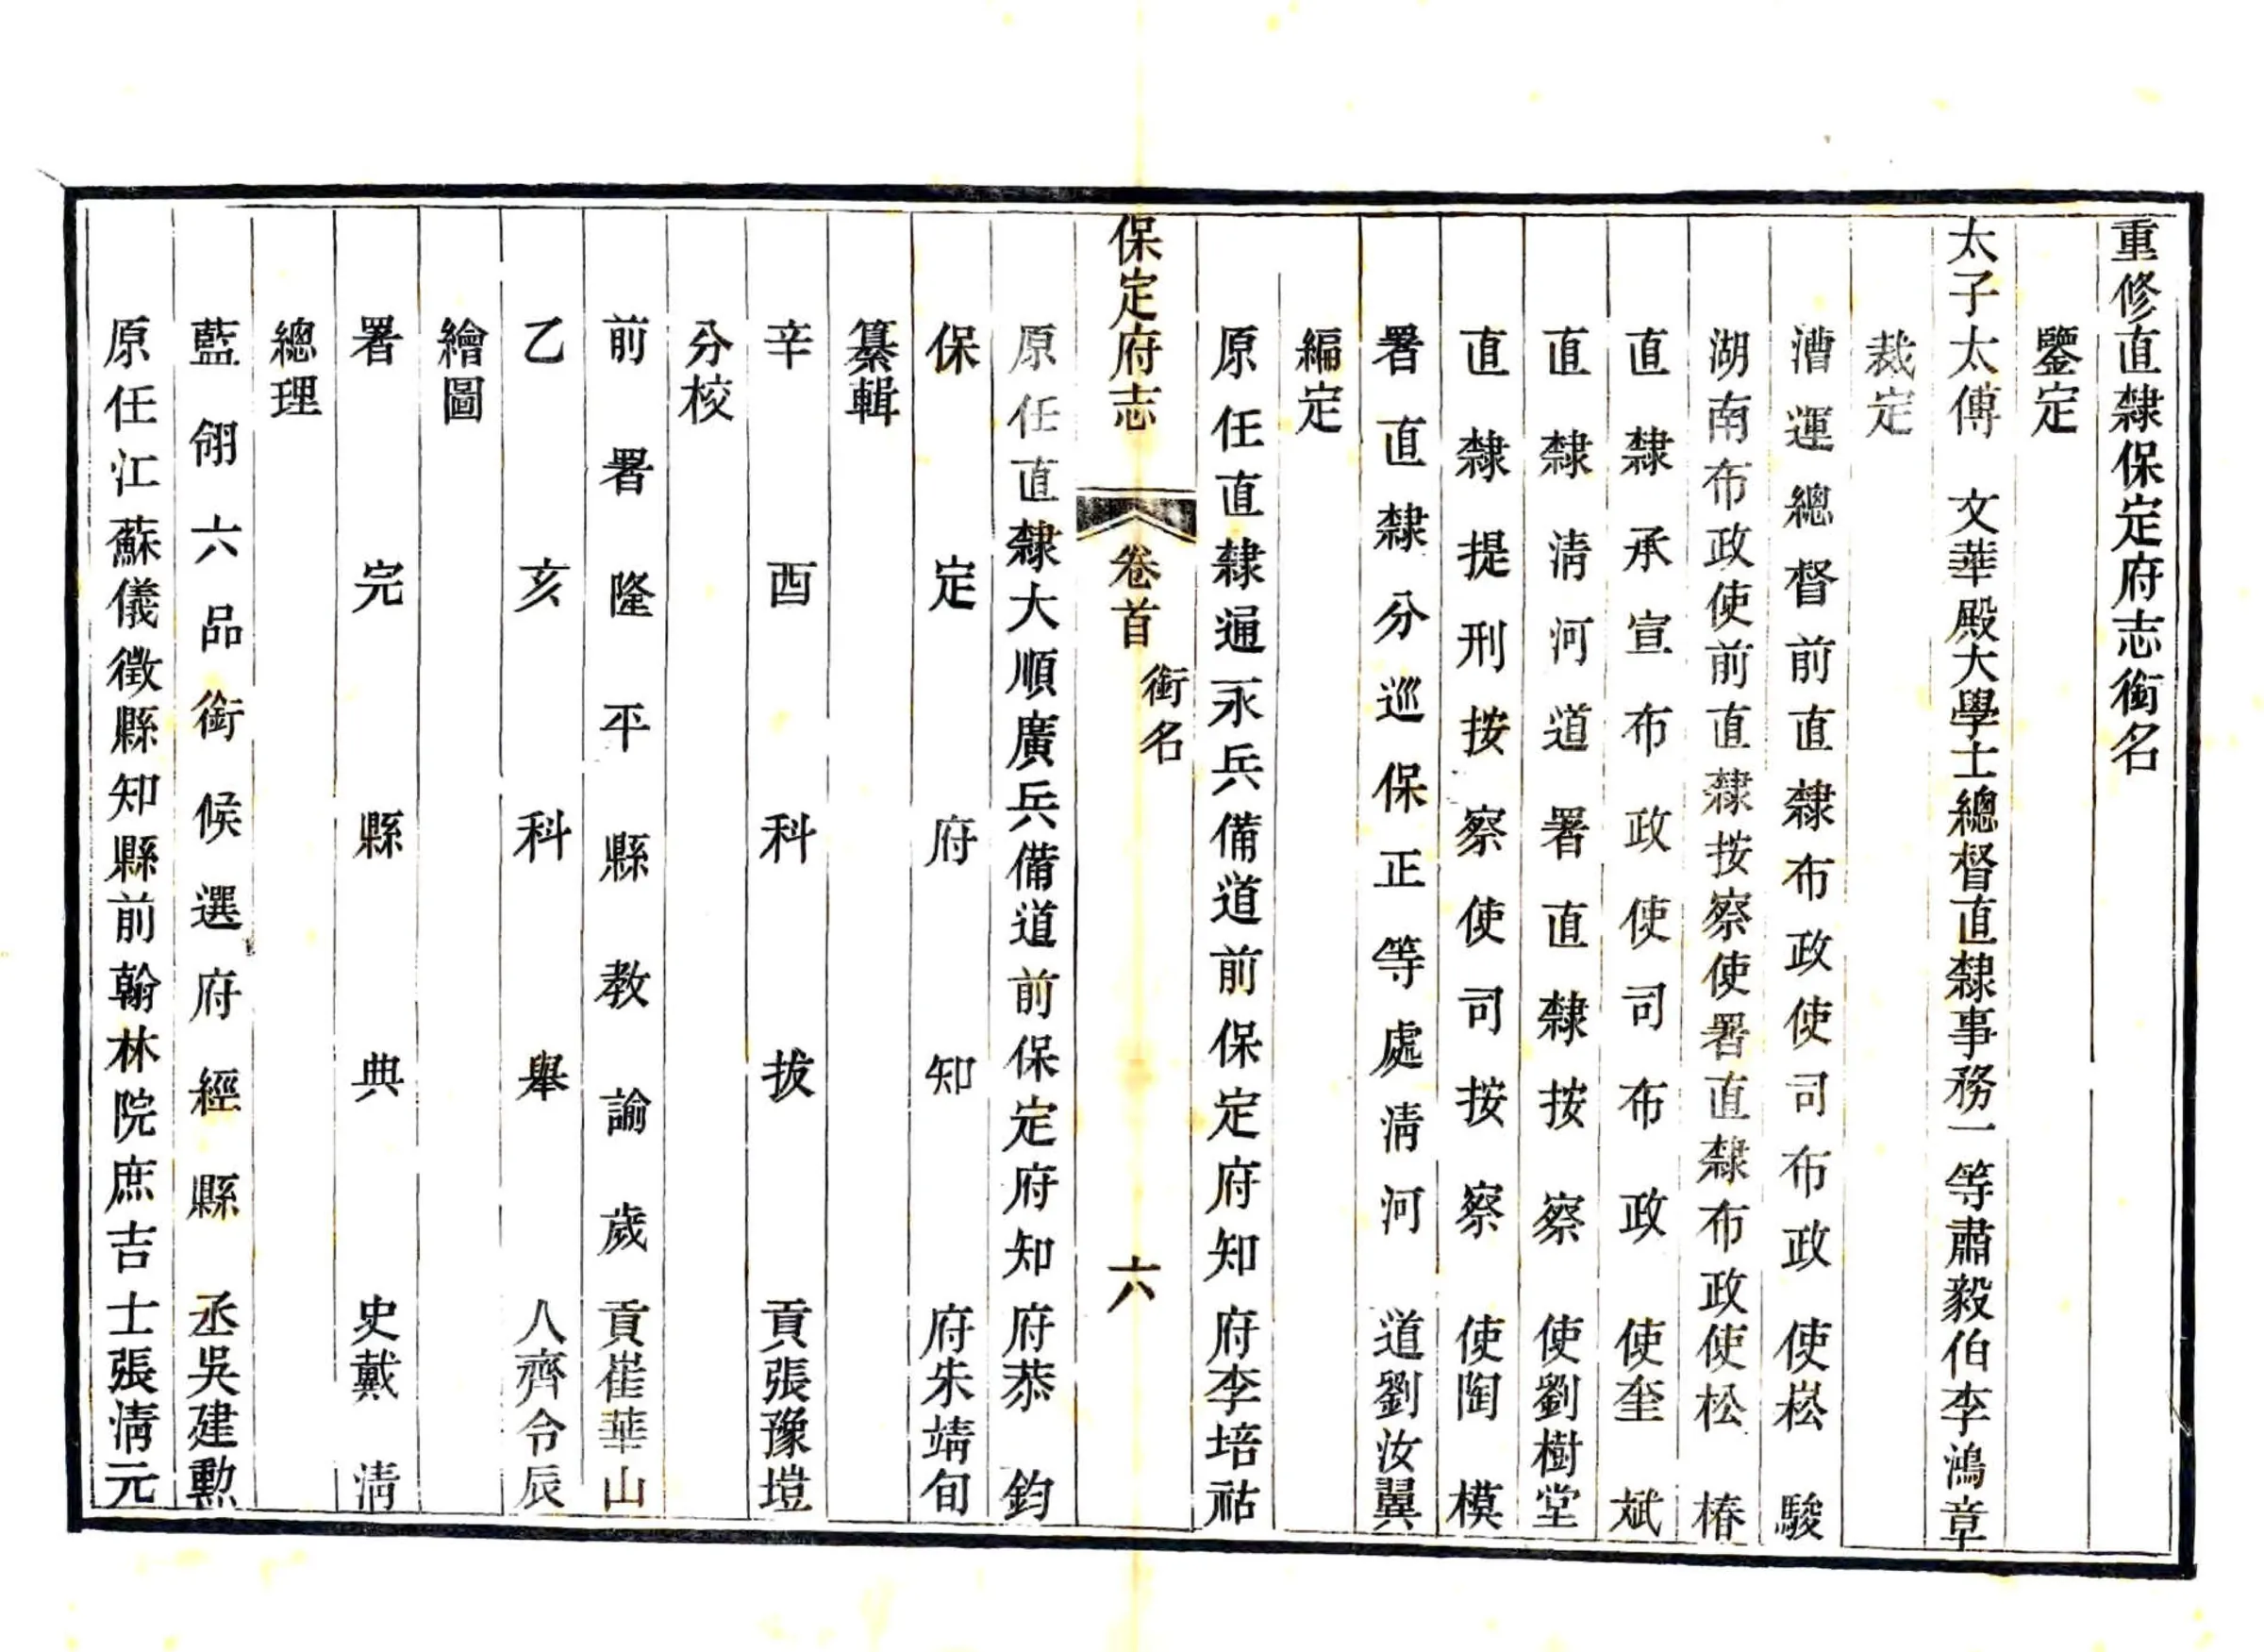 重修直隸保定府志銜名
鑒定
太子太傅　文華殿大學士總督直隸事務一等肅毅伯李鴻章
裁定
漕運總督前直隸布政使司布政使崧駿
湖南布政使前直隸按察使署直隸布政使松椿
直隸承宣布政使司布政使奎斌
直隸清河道署直隸按察使劉樹堂
直隸提刑按察使司按察使陶模
署直隸分巡保正等處清河道劉汝翼
編定
原任直隸通永兵備道前保定府知府李培祜
保定府志　卷首　銜名　六
原任直隸大順廣兵備道前保定府知府恭鈞
保定府知府朱靖旬
纂輯
辛酉科拔貢張豫塏
分校
前署隆平縣教諭歲貢崔華山
乙亥科舉人齊令辰
繪圖
署完縣典史戴清
總理
藍翎六品銜候選府經縣丞吳建勳
原任江蘇儀徵縣知縣前翰林院庶吉士張清元